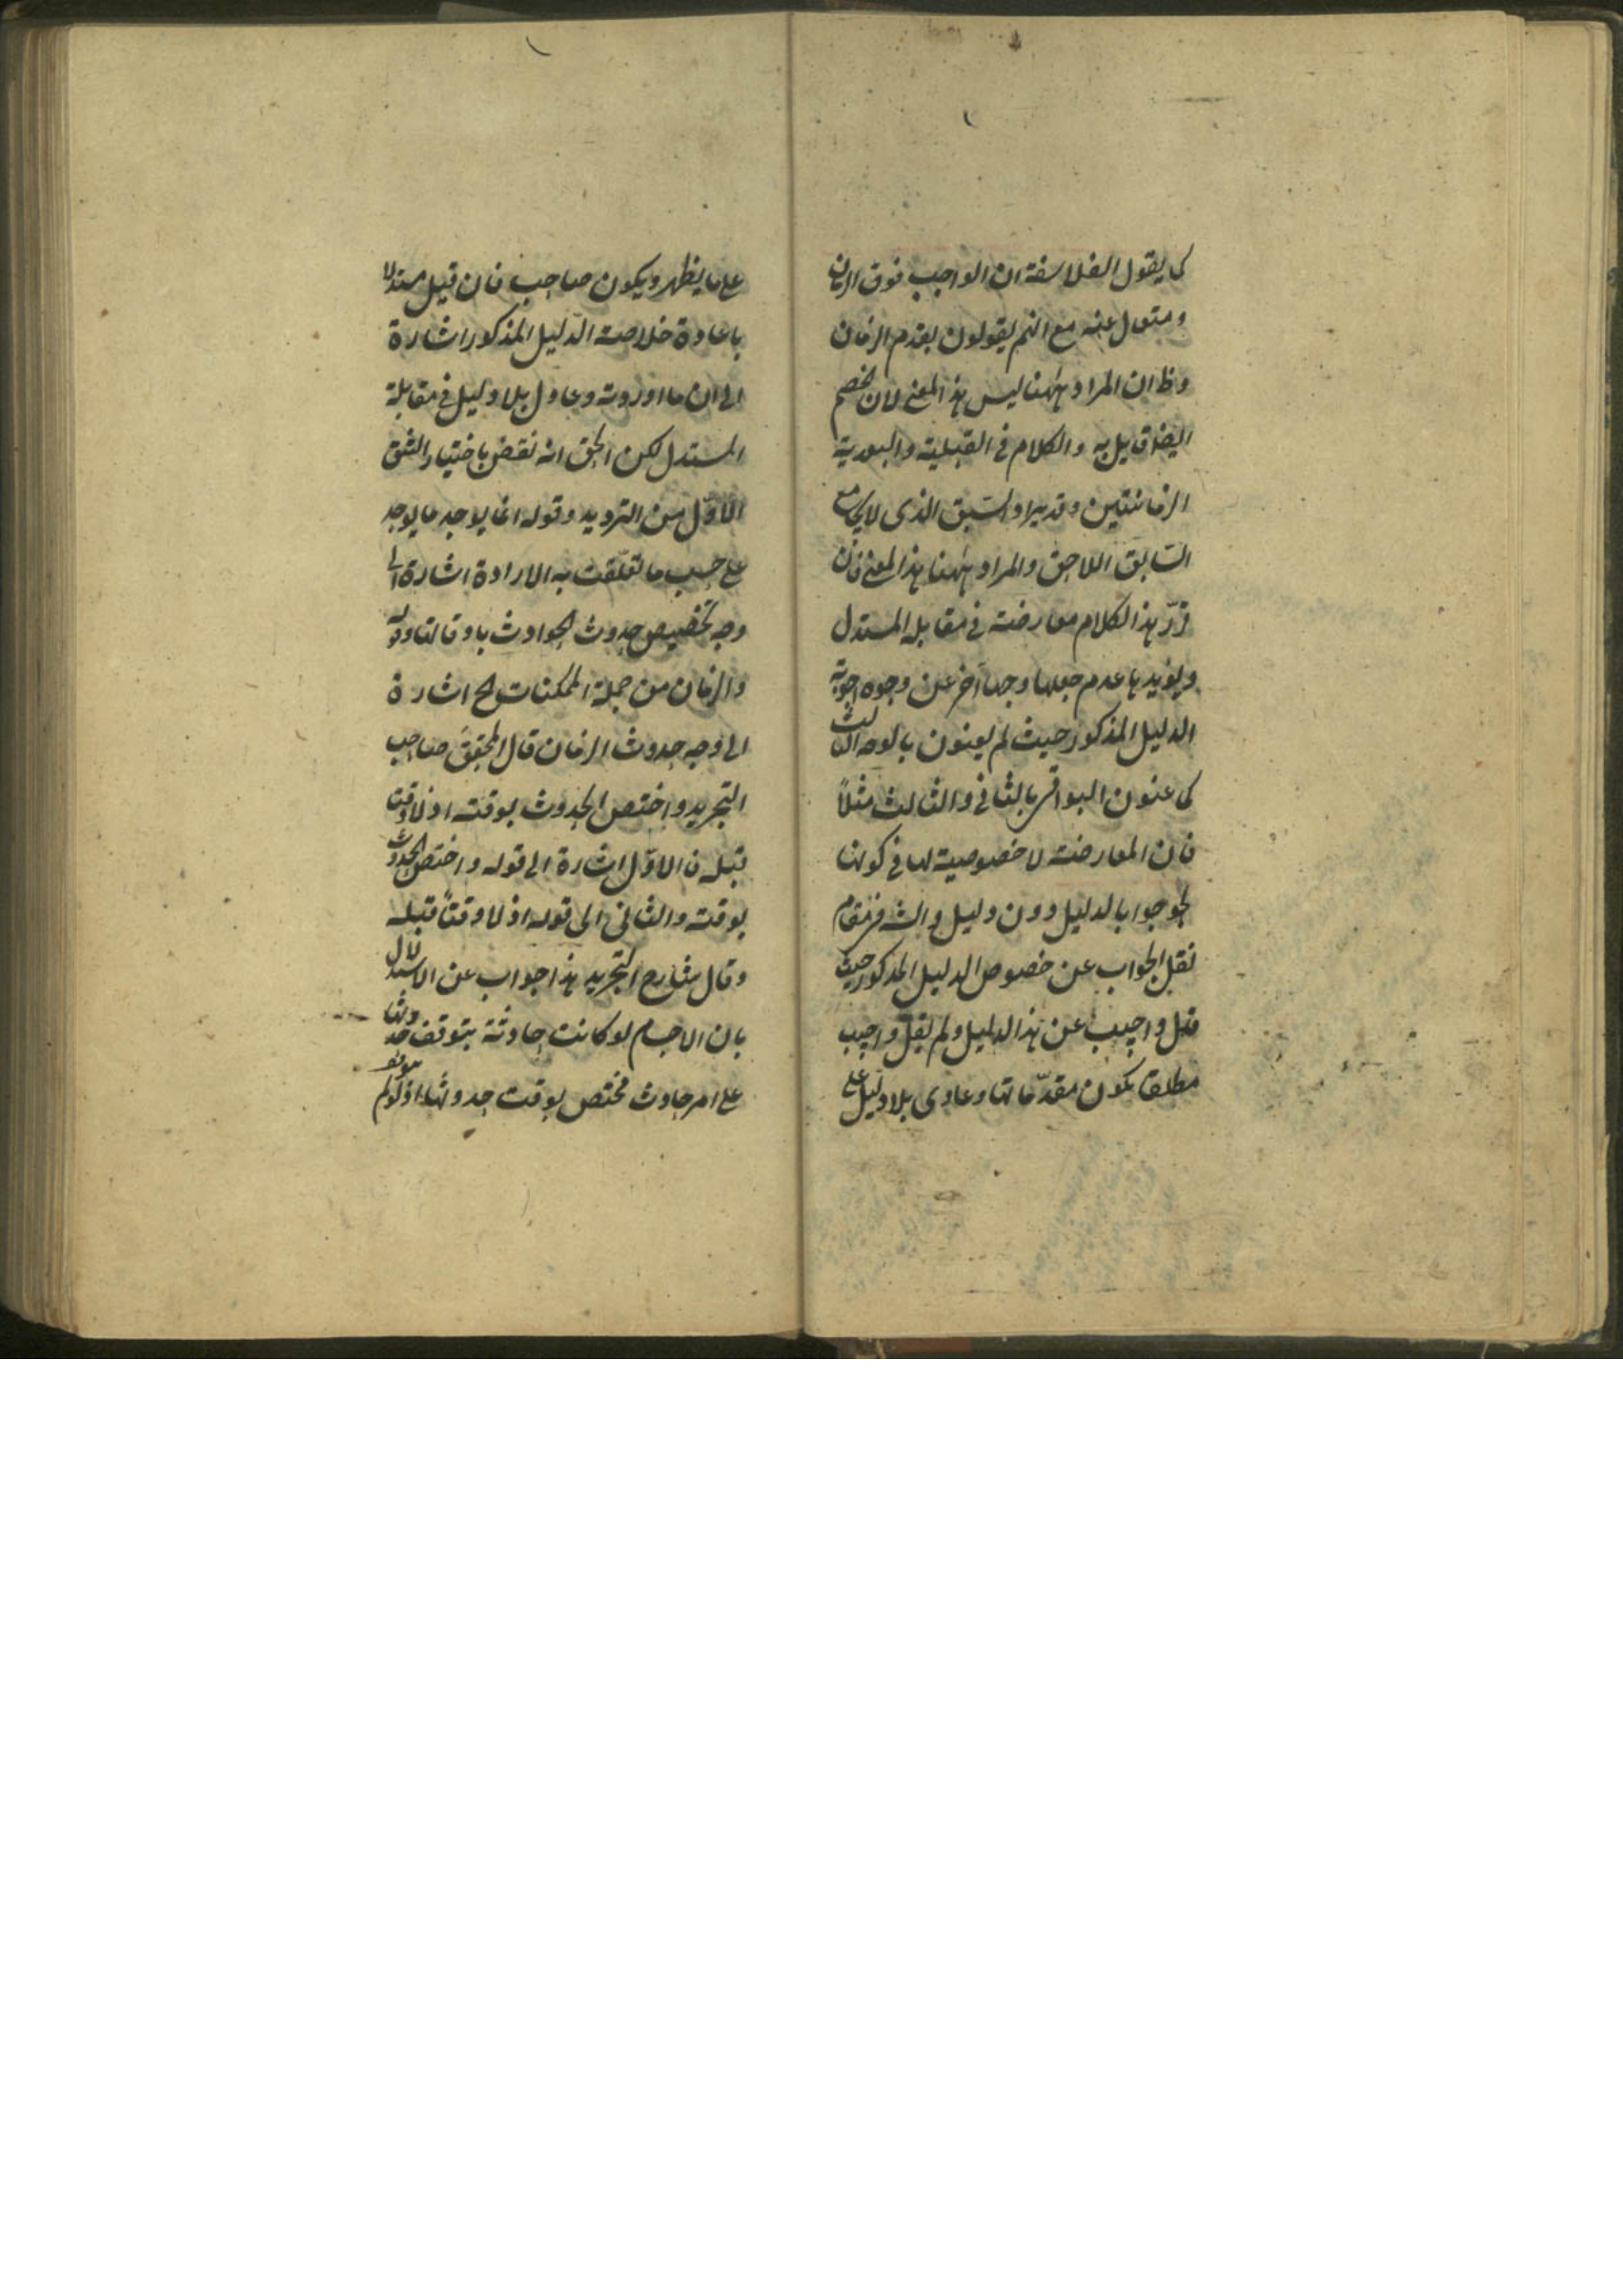 كما يقول الفلاسفة ان الواجب فوق الزمان
ومتعال عنه مع انهم يقولون بقدم الزمان
وظ ان المراد ههنا ليس هذا المعنى لان الخصم
ايضا قايل به والكلام في القبلية والبعدية
الزمانيتين وقد يراد السبق الذى لا يجامع
السابق اللاحق والمراد ههنا هذا المعنى فان
قرّر هذا الكلام معارضة في مقابلة المستدل
ويؤيدها عدم جعلها وجهاً آخر عن وجوه اجوبة
الدليل المذكور حيث لم يعنون بالوجه الثالث
كما عنون البواقى بالثانى والثالث مثلاً
فان المعارضة لا خصوصية لها في كونها
جوابا بالدليل دون دليل والش في مقام
نقل الجواب عن خصوص الدليل المذكور حيث
قال واجيب عن هذا الدليل ولم يقل واجيب
مطلقا يكون مقدّماتها دعاوى بلا دليل على
على ما يظهر ويكون صاحب فان قيل مستدلا
باعادة خلاصة الدليل المذكور اشارة
الى ان ما اوردته دعاو بلا دليل في مقابلة
المستدل لكن الحق انه نقض باختيار الشق
الاوّل من الترديد وقوله انما يوجد ما يوجد
على حسب ما تعلّقت به الارادة اشارة الى
وجه تخصيص حدوث الحوادث باوقاتها وقوله
والزمان من جملة الممكنات الخ اشارة
الى وجه حدوث الزمان قال المحقق صاحب
التجريد واختص الحدوث بوقته اذ لا وقت
قبله فالاوّل اشارة الى قوله واختص الحدوث
بوقته والثانى الى قوله اذ لا وقتاً قبله
وقال شارح التجريد هذا جواب عن الاستدلال
بان الاجسام لو كانت حادثة يتوقف حدوثها
على امر حادث مختص بوقت حدوثها اذ لو لم